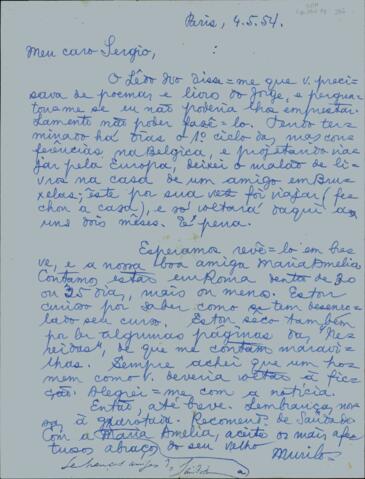 Paris, 4.5.54.
Meu caro Sergio,
O Lêdo Ivo disse=me que v. preci-
sava de poemas, e livro do Jorge, e pergun-
tou=me se eu não poderia lhos emprestar.
Lamento não poder fazê=lo. Tendo ter-
minado há dias o 1º ciclo das mas con-
ferências na Belgica, e projetando via-
jar pela Europa, deixei o malão de li-
vros na casa de um amigo em Bru-
xelas; êste por sua vez foi viajar (fe-
chou a casa), e só voltará daqui a
uns dois mêses. É pena.
Esperamos revê=lo em bre-
ve, e a nossa boa amiga Maria Amelia.
Contamos estar em Roma dentro de 20
ou 25 dias, mais ou menos. Estou
curioso por saber como se tem desenro-
lado seu curso. Estou sêco também
por ler algumas páginas
de que me contam maravi-
lhas. Sempre achei que um ho-
mem como v. deveria voltar à fic-
ção. Alegrei=me com a notícia.
Então, até breve. Lembranças nos-
sas, à garotada. Recoment. de Saudade.
Com a Maria Amelia, aceite os mais afe-
tuosos abraços do seu velho
Murilo